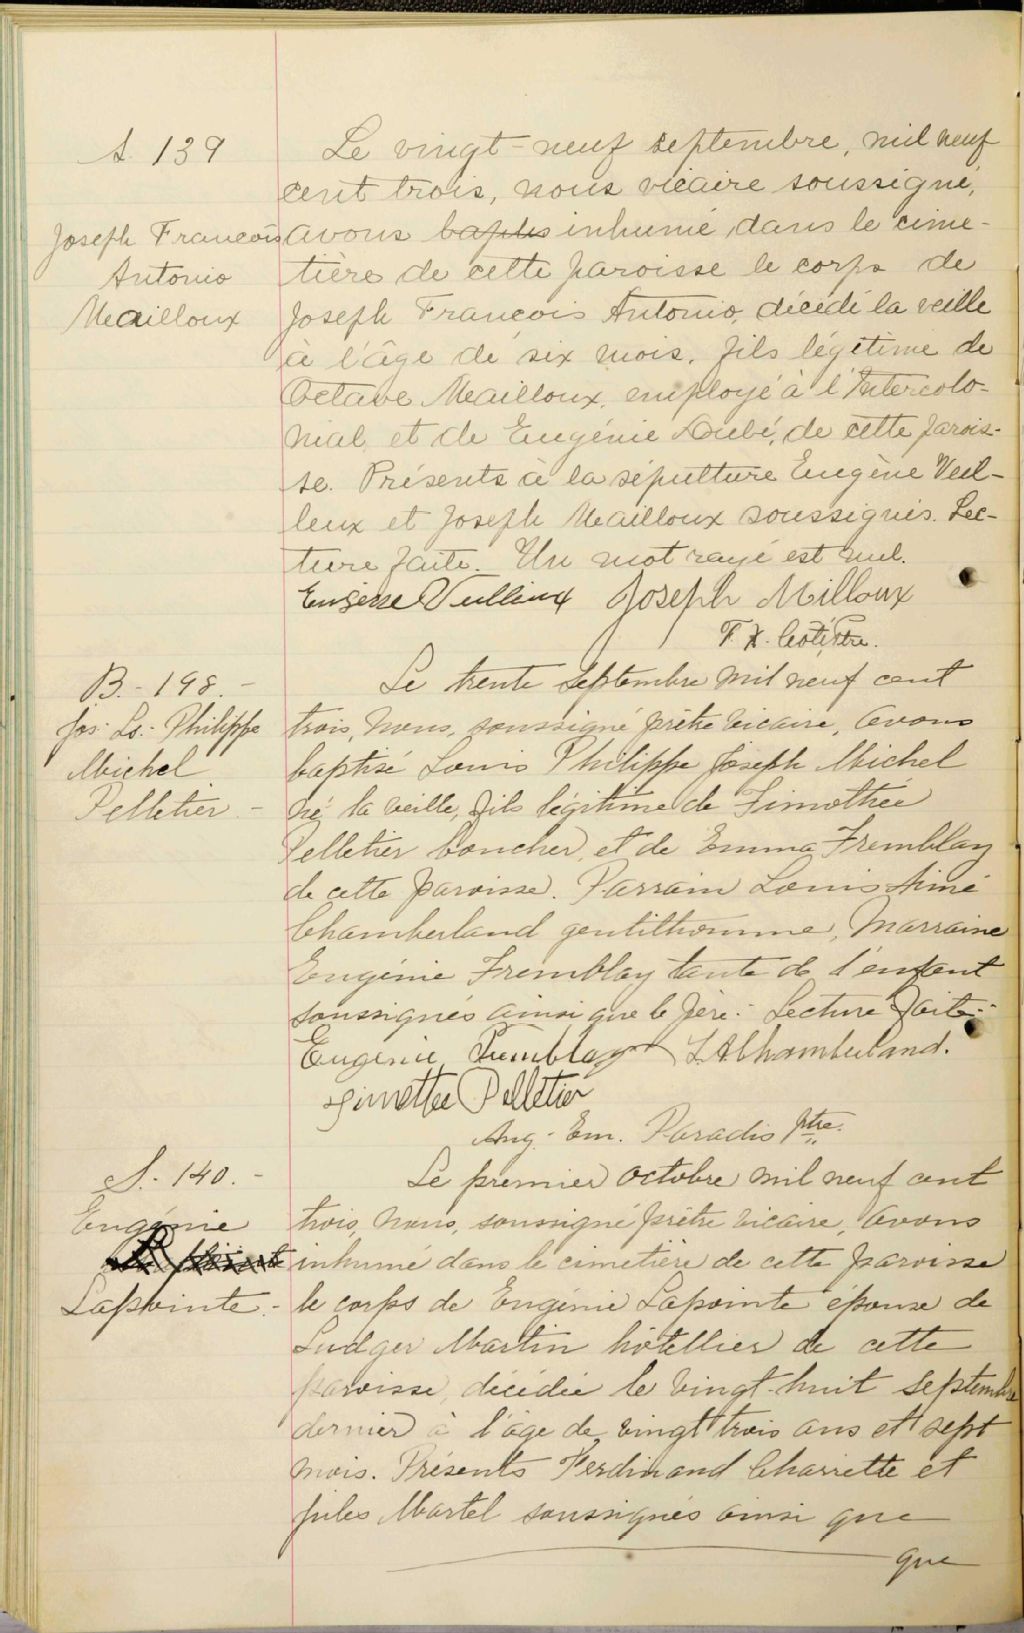 S. 139
Joseph François
Antonio
Mailloux
Le vingt-neuf septembre, mil neuf
cent trois, nous vicaire soussigné,
avons inhumé dans le cime-
tière de cette paroisse le corps de
Joseph François Antonio, décédé la veille
à l'âge de six mois, fils légitime de
Octave Mailloux, employé à l'Intercolo-
nial et de Eugénie Dubé, de cette parois-
se. Présents à la sépulture Eugène Veil-
leux et Joseph Mailloux soussignés. Lec-
ture faite. Un mot rayé est nul.
Eugène Veilleux Joseph Milloux
F. X. Côté Ptre.
B. - 198. -
Jos: Ls: Philippe
Michel
Pelletier -
Le trente septembre mil neuf cent
trois, nous, soussigné prêtre vicaire, avons
baptisé Louis Philippe Joseph Michel
né la veille, fils légitime de Timothée
Pelletier boucher, et de Emma Tremblay
de cette paroisse. Parrain Louis Aimé
Chamberland gentilhomme, Marraine
Eugénie Tremblay tante de l'enfant
soussignés ainsi que le père. Lecture faite.
Eugenie Tremblay L.A Chamberland.
Timothee Pelletier
Aug. Em. Paradis ptre.
S. - 140. -
Eugénie
Lapointe. -
Le premier octobre mil neuf cent
trois, nous, soussigné prêtre vicaire, avons
inhumé dans le cimetière de cette paroisse
le corps de Eugénie Lapointe épouse de
Ludger Martin hôtellier de cette
paroisse, décédée le vingt-huit septembre
dernier à l'âge de vingt trois ans et sept
mois. Présents Ferdinand Charrette et
Jules Martel soussignés ainsi que
que